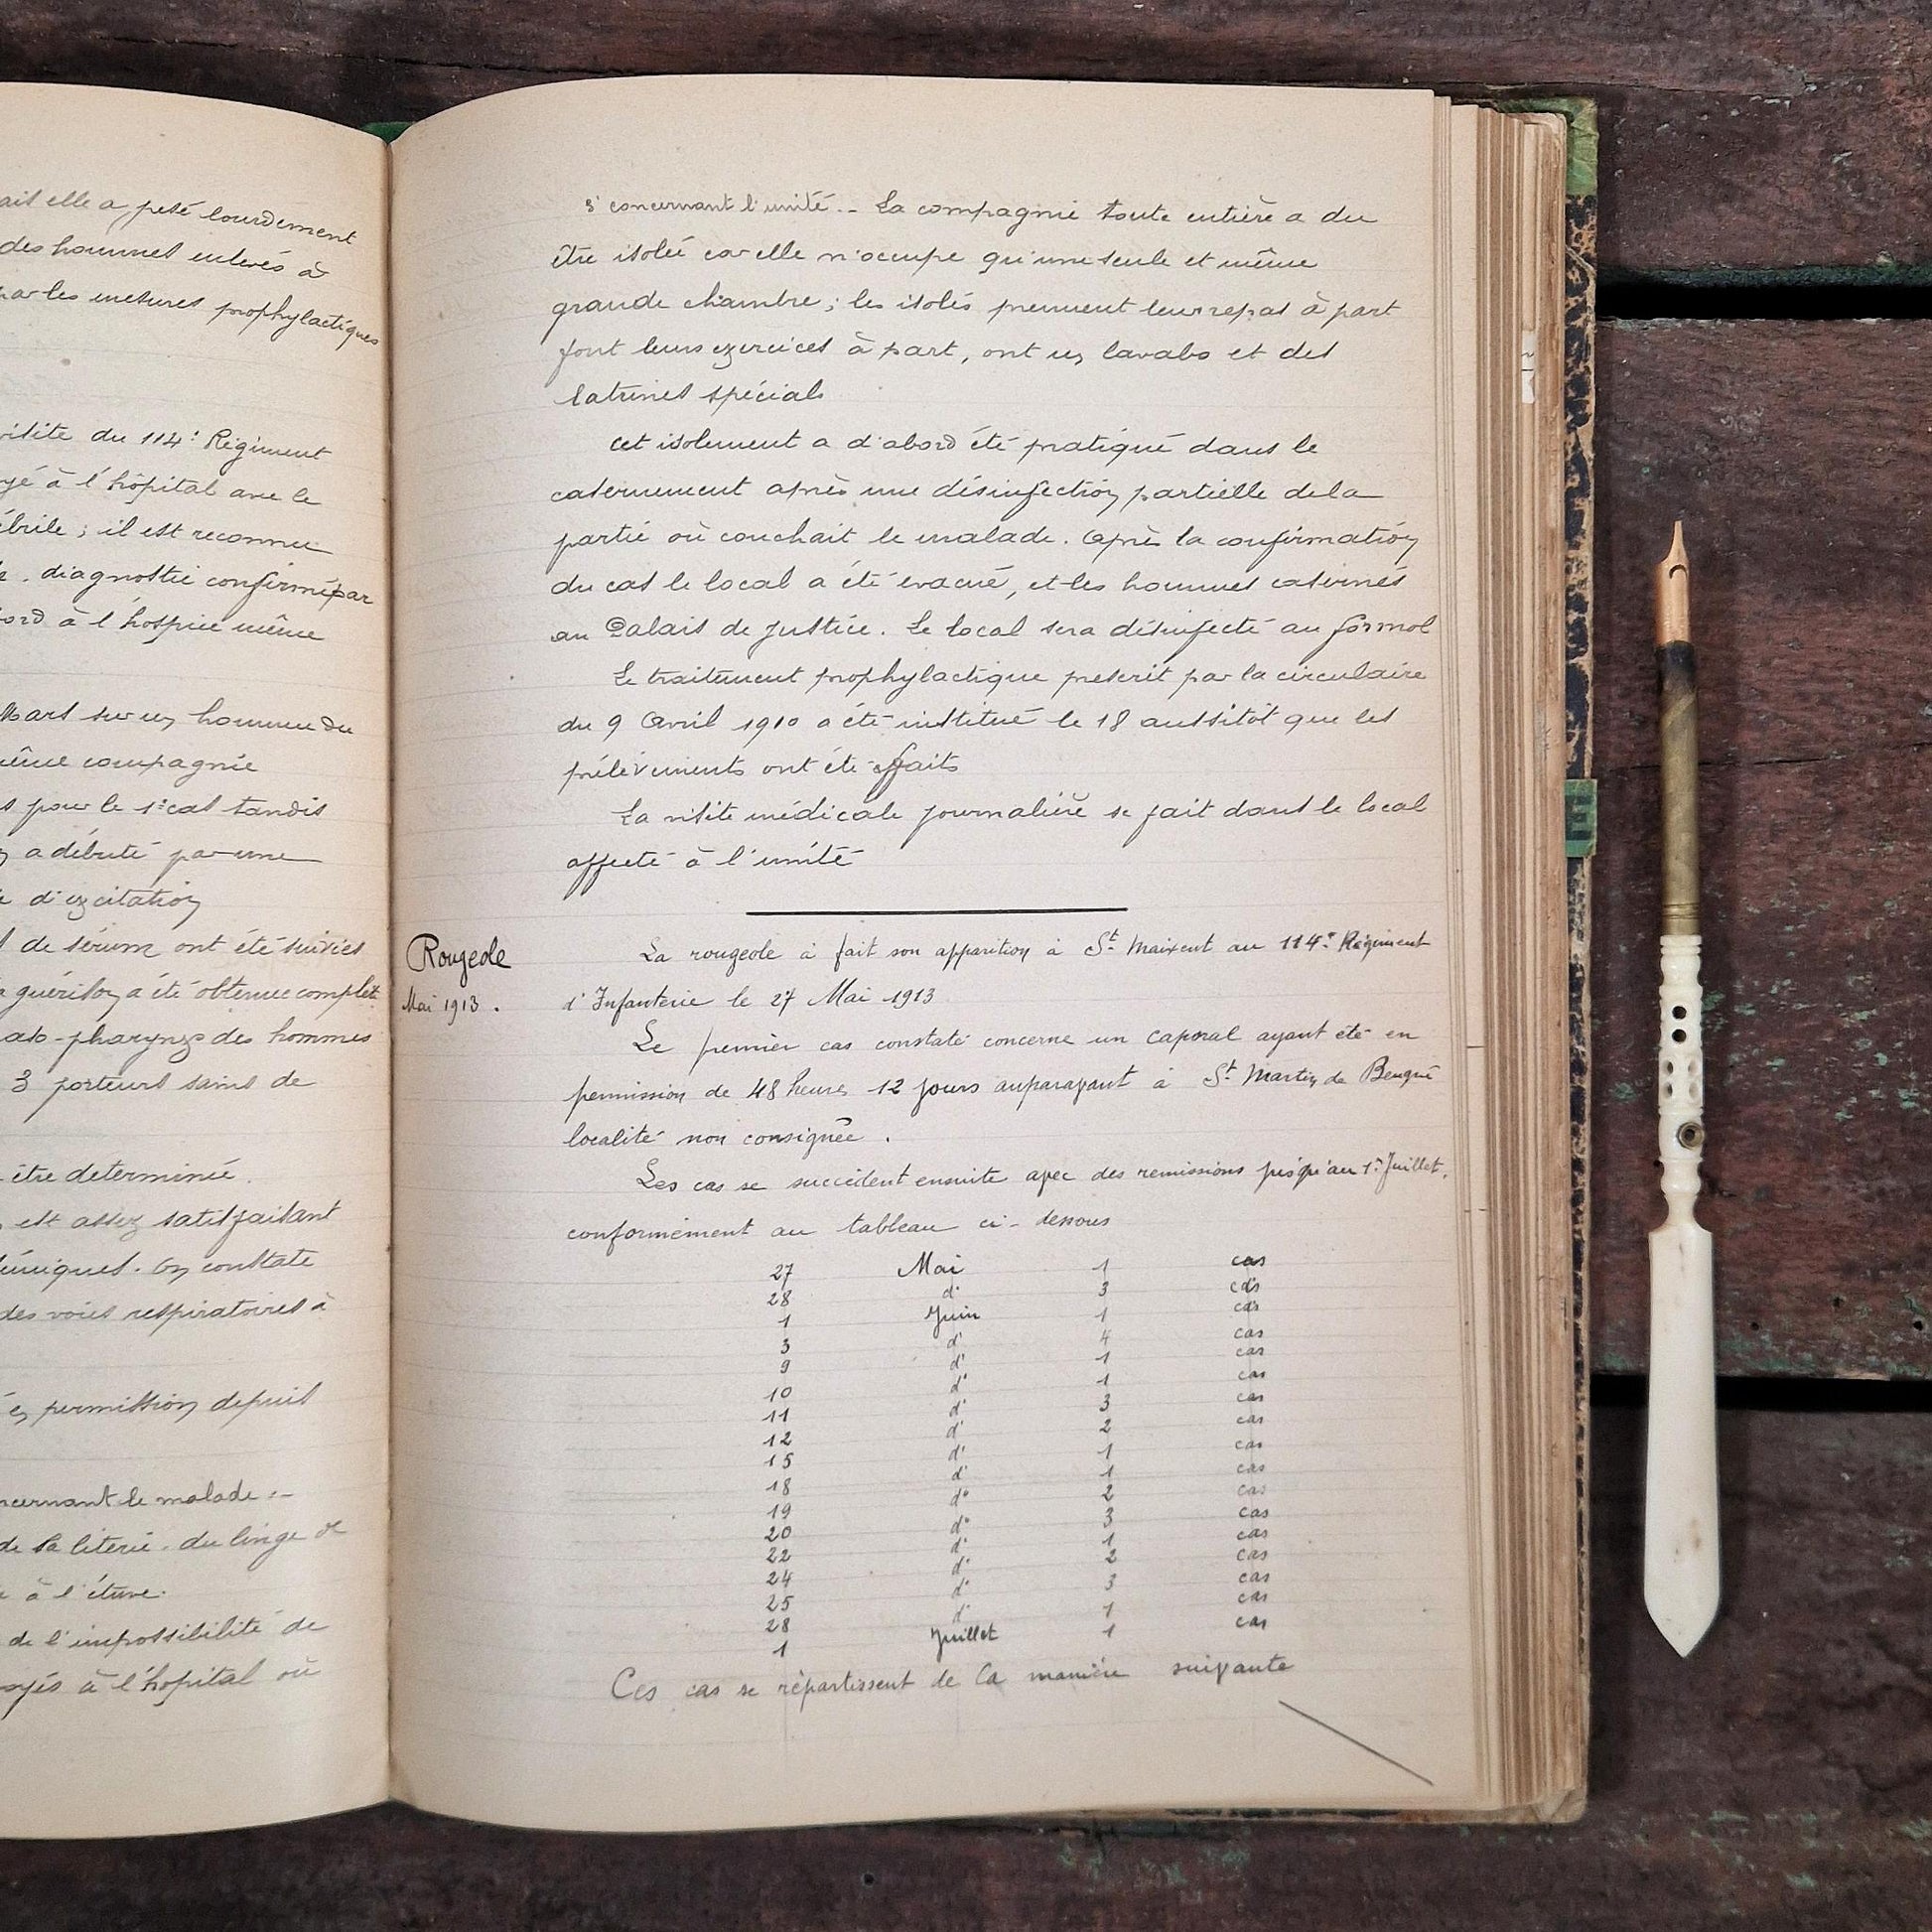 ait elle a pesé lourdement
des hommes enlevés à
par les mesures prophylactiques
visite du 114e Régiment
yé à l'hôpital avec le
ébrile ; il est reconnu
diagnostic confirmé par
ord à l'hospice même
Mars sur un homme du
même compagnie
s pour le 1er cas tandis
a débuté par une
d'excitation
de sérum ont été suivies
guérison a été obtenue complèt
aso-pharynx des hommes
3 porteurs sains de
être determiné.
est assez satisfaisant
iéniques. On constate
des voies respiratoires à
en permission depuis
ncernant le malade :-
de la literie. du linge et
à l'étuve.
de l'impossibilité de
oyés à l'hopital où
3° concernant l'unité.- La compagnie toute entière a du
être isolée car elle n'occupe qu'une seule et même
grande chambre ; les isolés prennent leurs repas à part
font leurs exercices à part, ont un lavabo et des
latrines spécials
Cet isolement a d'abord été pratiqué dans le
casernement après une désinfection partielle de la
partie où couchait le malade. Après la confirmation
du cas le local a été évacué, et les hommes casernés
au Palais de Justice. Le local sera désinfecté au formol
Le traitement prophylactique prescrit par la circulaire
du 9 Avril 1910 a été institué le 18 aussitôt que les
prélèvements ont été faits
La visite médicale journalière se fait dans le local
affecté à l'unité
Rougeole
Mai 1913.
La rougeole à fait son apparition à St Maixent au 114e Régiment
d'Infanterie le 27 Mai 1913
Le premier cas constaté concerne un caporal ayant été en
permission de 48 heures 12 jours auparavant à St Martin de
localité non consignée.
Les cas se succèdent ensuite avec des remissions jusqu'au 1er Juillet.
conformément au tableau ci-dessous
27 Mai 1 cas
28 d° 3 cas
1 Juin 1 cas
3 d° 4 cas
9 d° 1 cas
10 d° 1 cas
11 d° 3 cas
12 d° 2 cas
15 d° 1 cas
18 d° 1 cas
19 d° 2 cas
20 d° 3 cas
22 d° 1 cas
24 d° 2 cas
25 d° 3 cas
28 d° 1 cas
1 Juillet 1 cas
Ces cas se répartissent de la manière suivante
E